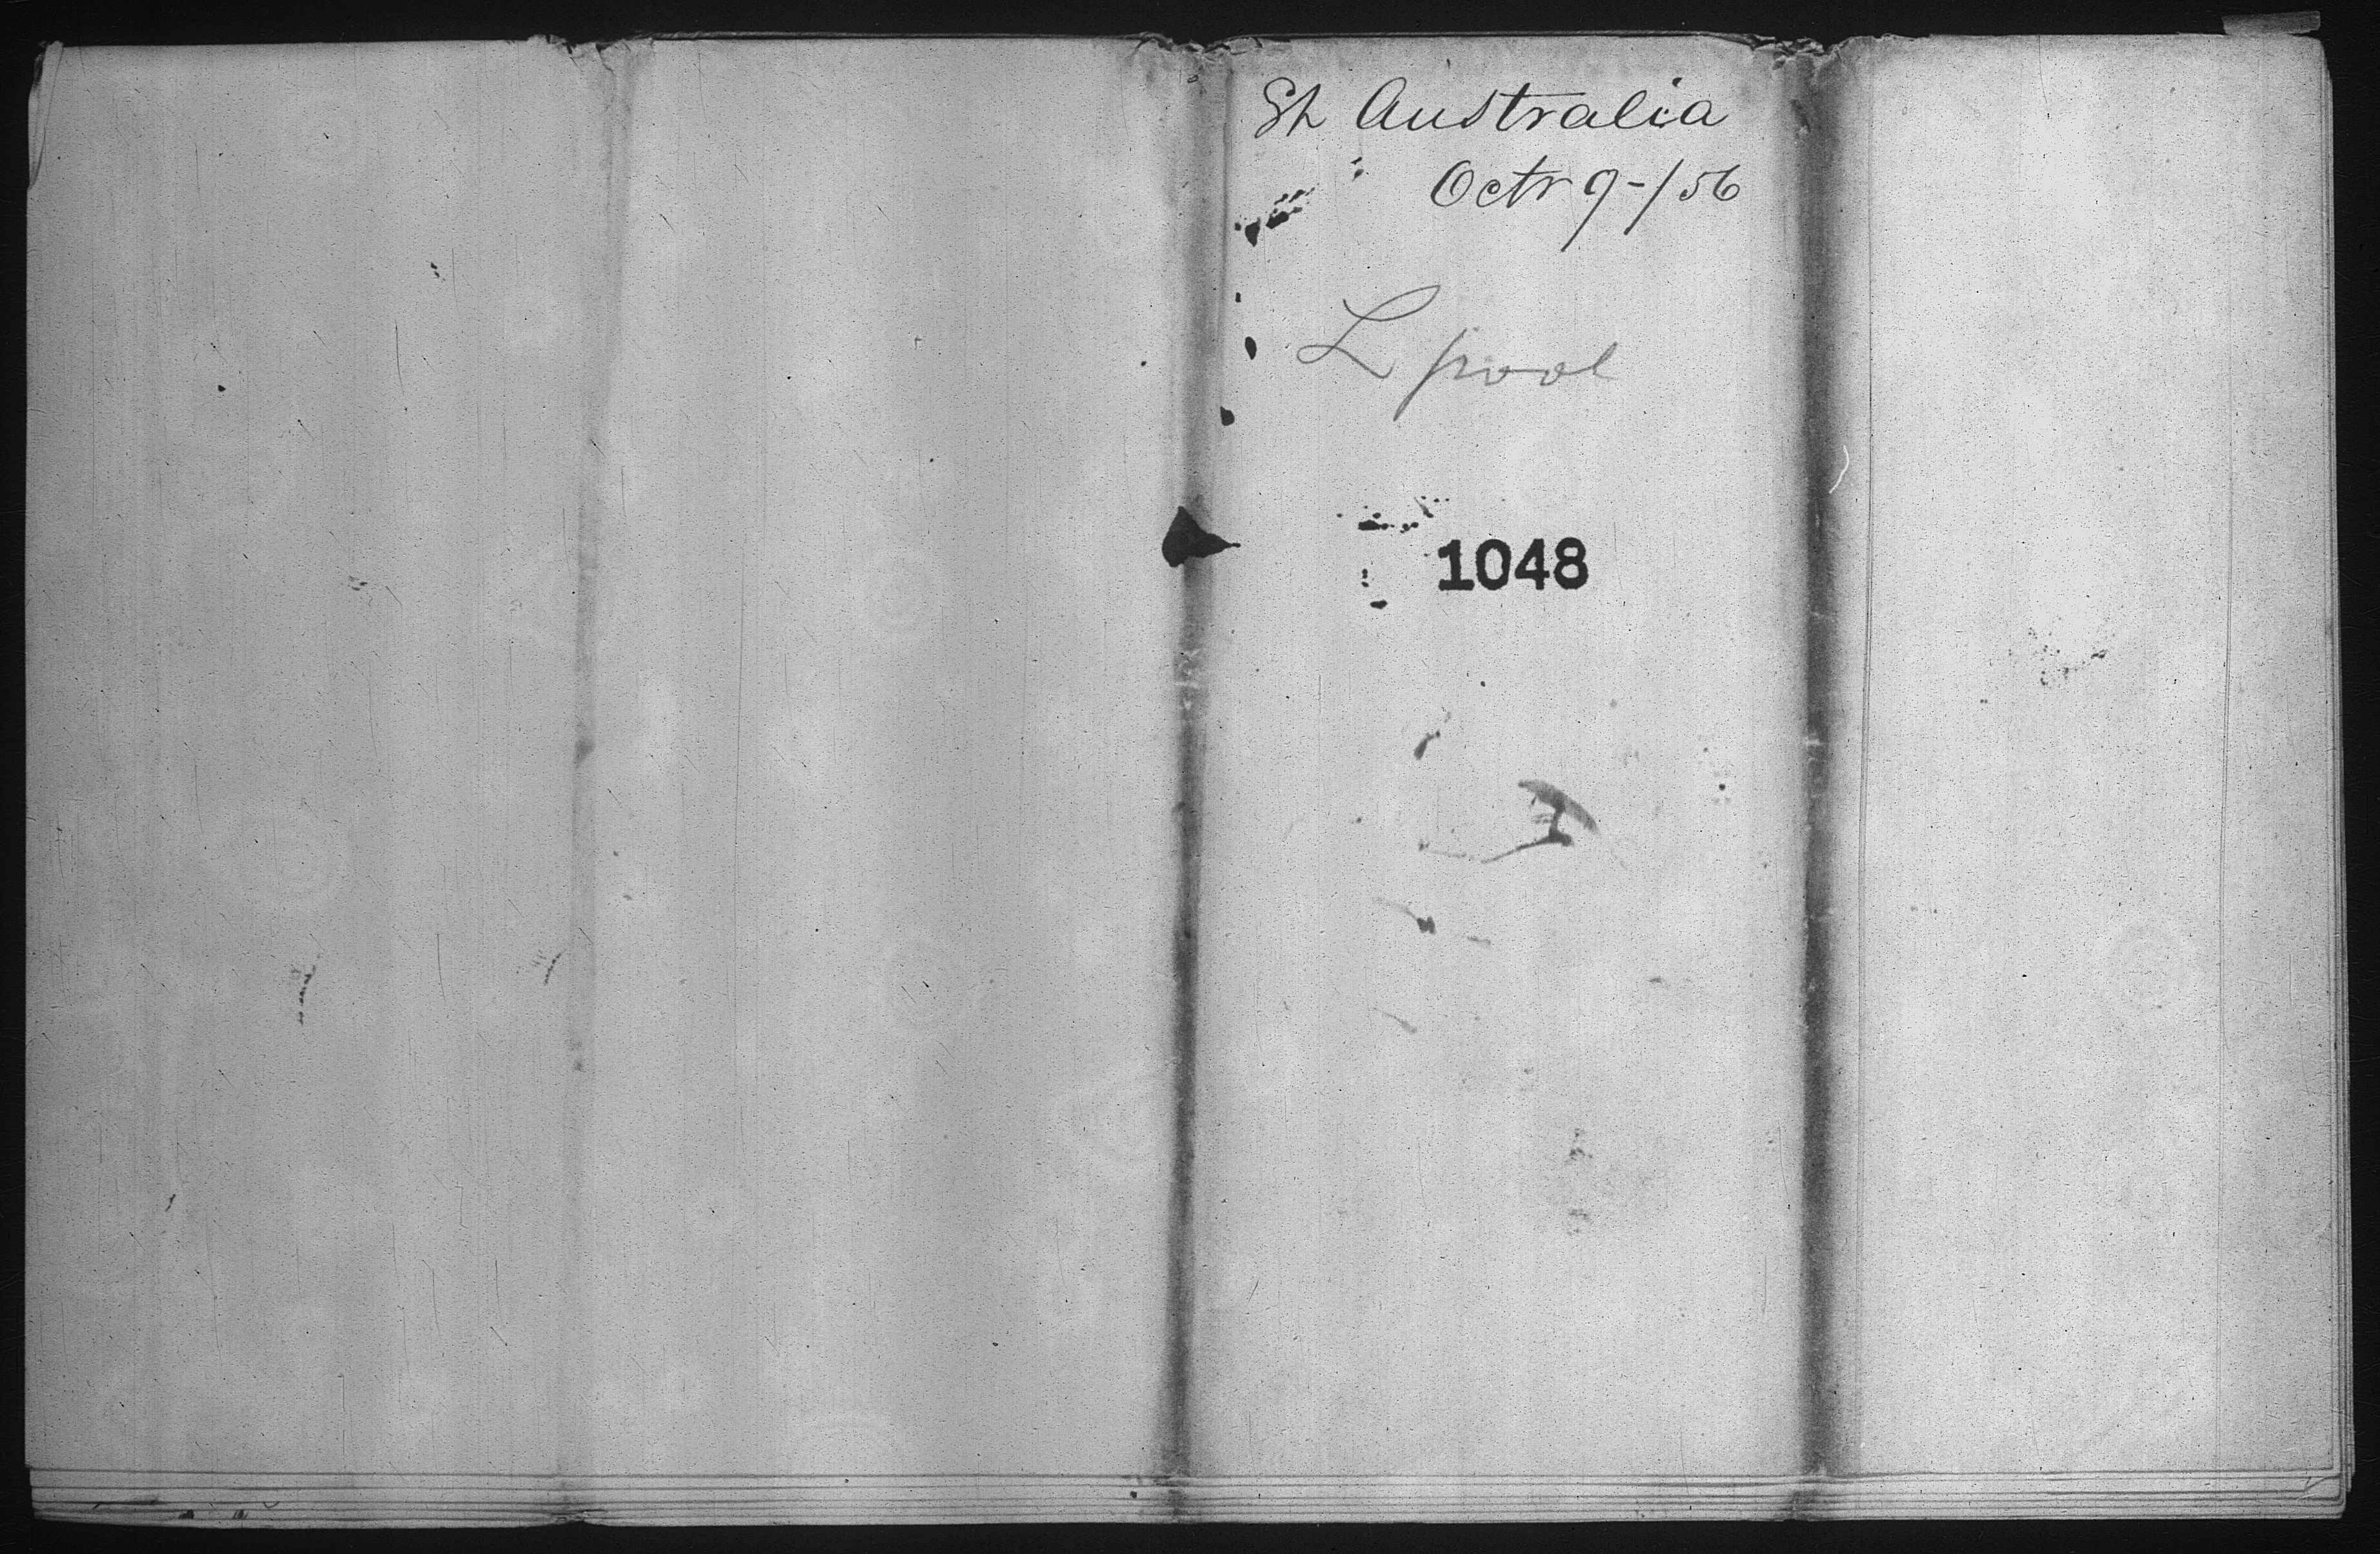 Sh Australia
Octr 9-/56
L pool
1048